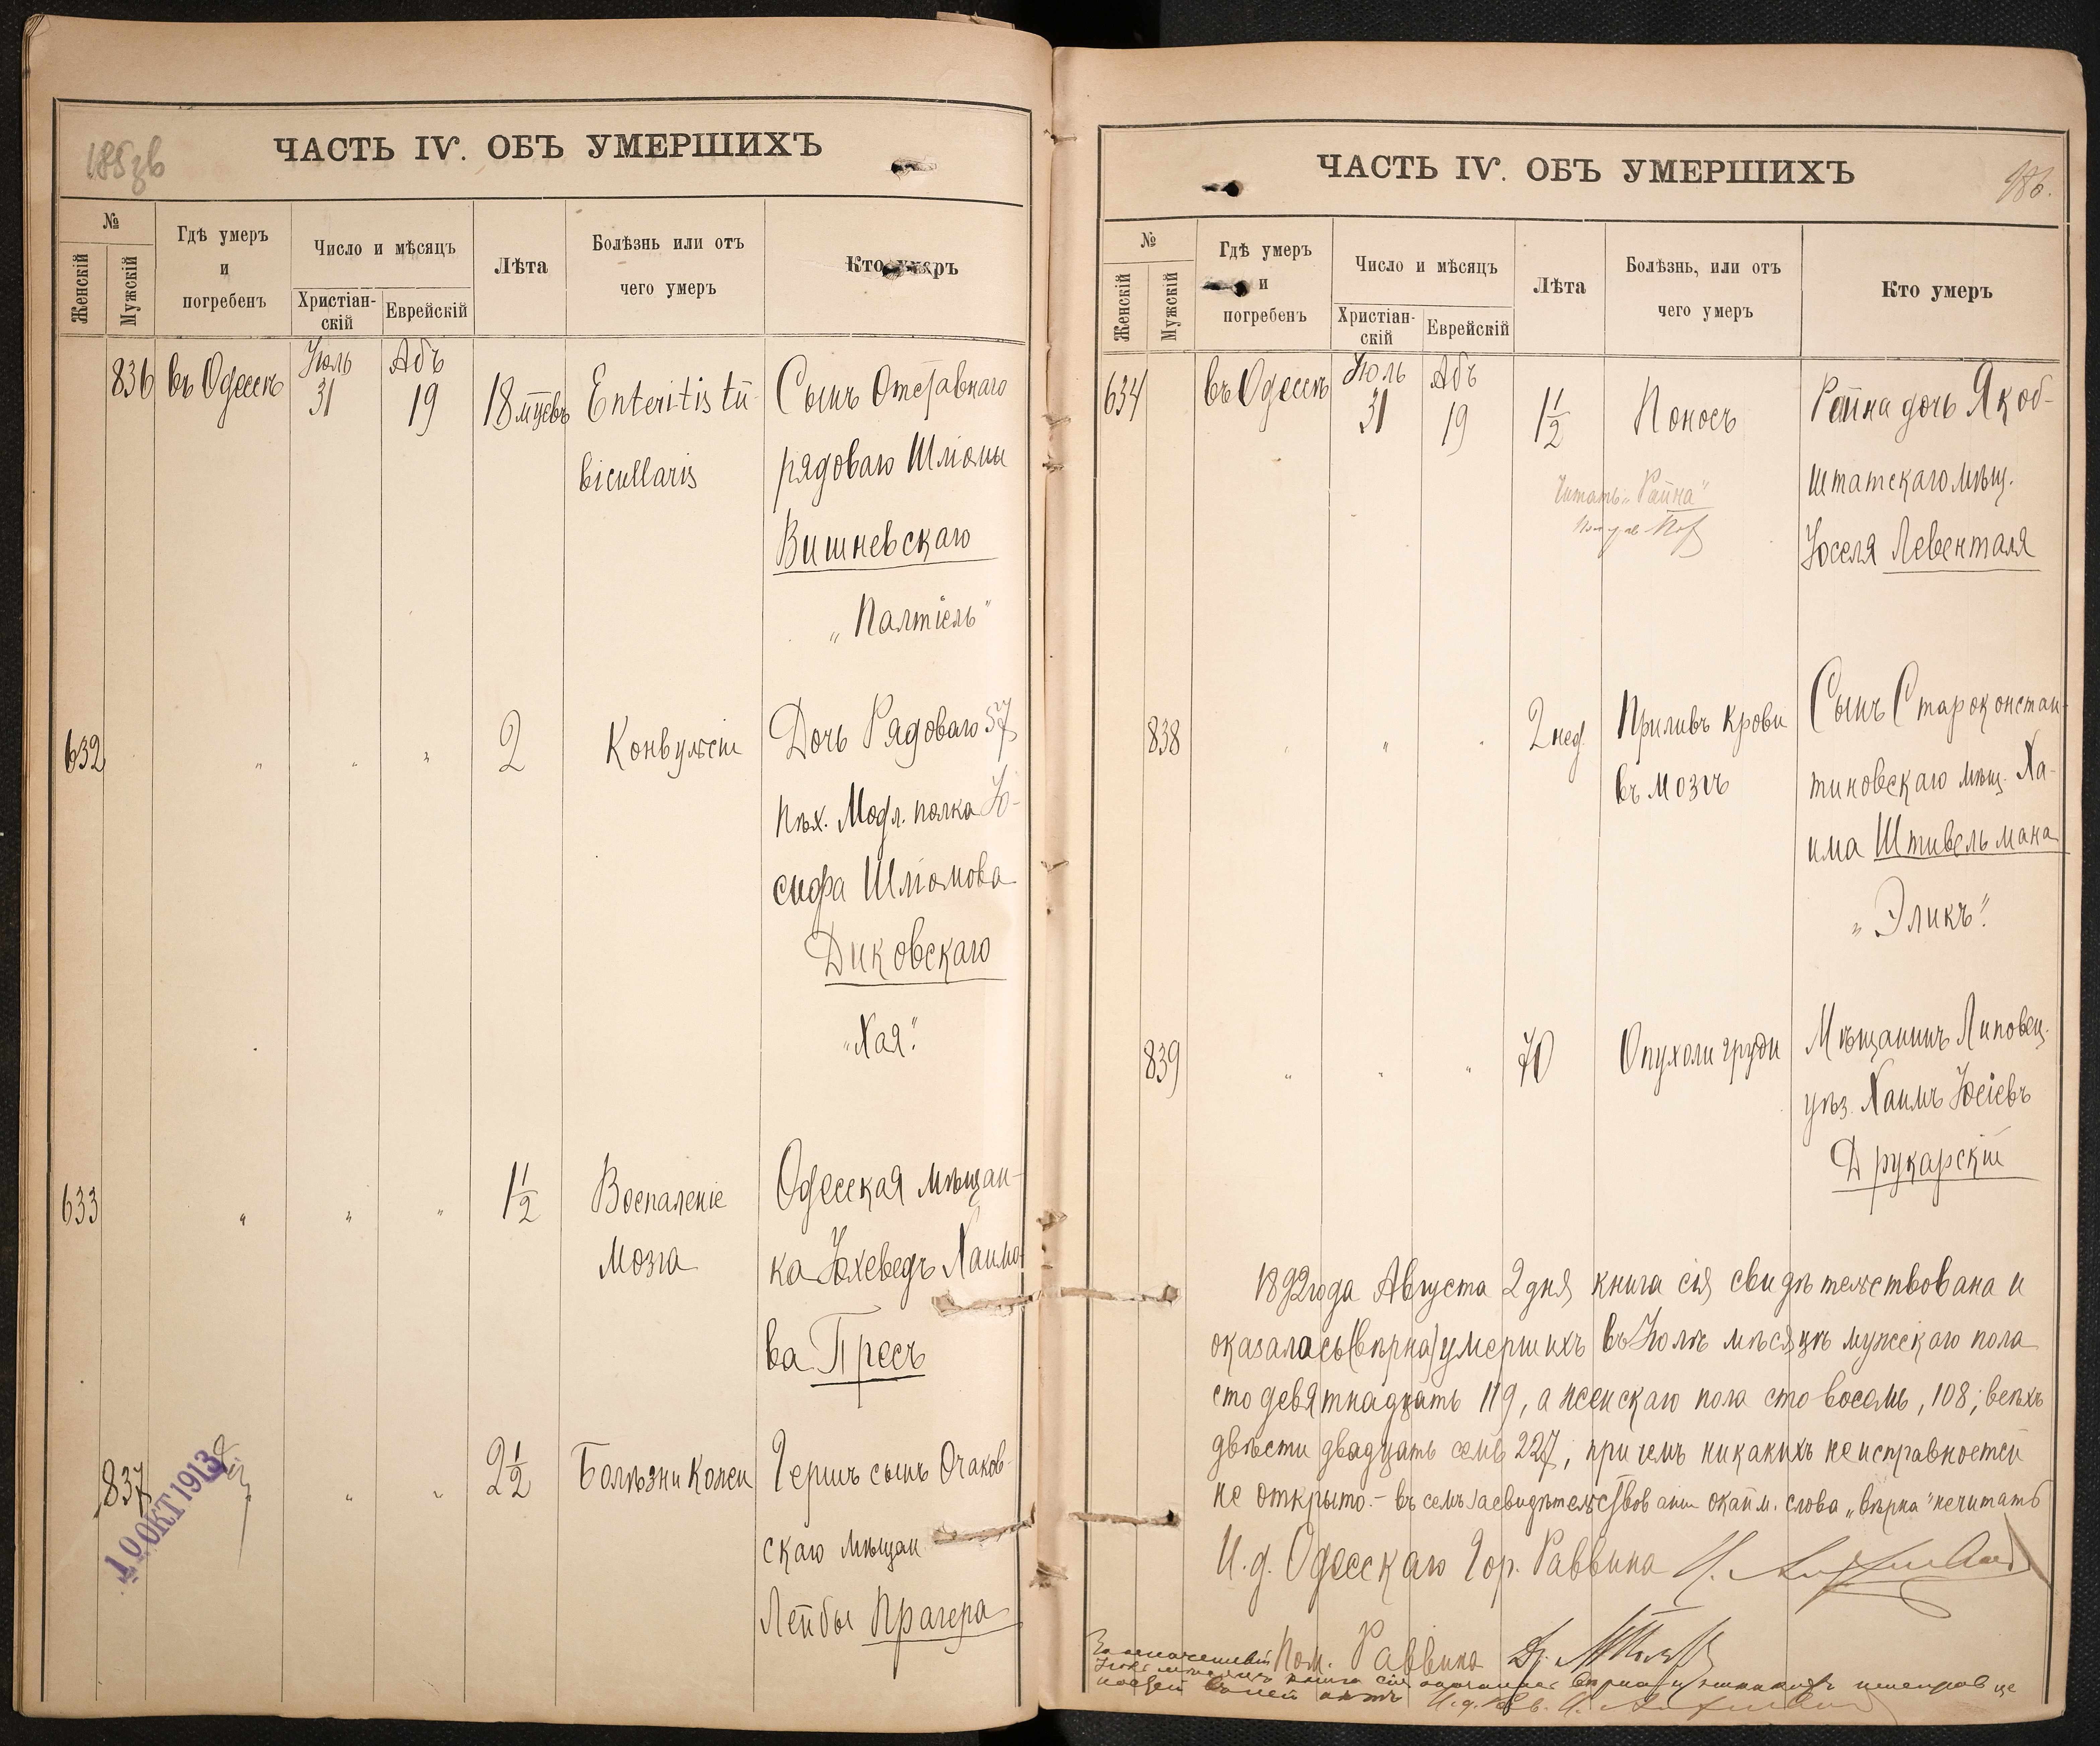 185 об
ЧАСТЬ IV. ОБЪ УМЕРШИХЪ
№
Женскій
Мужскій
Гдѣ умеръ
и
погребенъ
Число и мѣсяцъ
Христіан-
скій
Еврейскій
Лѣта
Болѣзнь или отъ
чего умеръ
Кто умеръ
836 въ Одессѣ Іюль 31 Абъ 19 18 мѣсяц. Enteritis tu- Сынъ Отставнаго
bicullaris рядоваго Шліомы
Вишневскаго
„Палтіель"
632 " " " 2 Конвульсіи Дочь Рядоваго 57
пѣх. Модл. полка Іо-
сифа Шліомова
Диковскаго
„Хая".
633 " " " 1½ Воспаленіе Одесская мѣщан-
мозга ка Юхеведъ Хаимо-
ва Пресъ
837 " " 2½ Болѣзни Кожи Гершъ сынъ Очаков-
скаго мѣщан
Лейбы Прагера
10 ОКТ 1913
ЧАСТЬ IV. ОБЪ УМЕРШИХЪ
186.
№
Женскій
Мужскій
Гдѣ умеръ
и
погребенъ
Число и мѣсяцъ
Христіан-
скій
Еврейскій
Лѣта
Болѣзнь, или отъ
чего умеръ
Кто умеръ
634 въ Одессѣ Іюль 31 Абъ 19 1½ Поносъ Райна дочь Якоб-
штатскаго мѣщ.
Читать „Райна"
Іоселя Левенталя
838 " " " 2 нед. Приливъ крови Сынъ Староконстан-
въ мозгъ тиновскаго мѣщ. Ха-
има Штивельмана
„Эликъ".
839 " " " 70 Опухоли груди Мѣщанинъ Липовец.
уѣз. Хаимъ Іосіевъ
Друкарскій
1892 года Августа 2 дня книга сія свидѣтельствована и
оказалась (вѣрна) умершихъ въ Іюлѣ мѣсяцѣ мужскаго пола
сто девятнадцать 119, а женскаго пола сто восемь, 108; всѣхъ
двѣсти двадцать семь 227, при чемъ никакихъ неисправностей
не открыто.- въ семъ засвидѣтельствованіи окайм. слова „вѣрна" нечитать
И. д. Одесскаго Гор. Раввина
Пом. Раввина Др.
книга сія